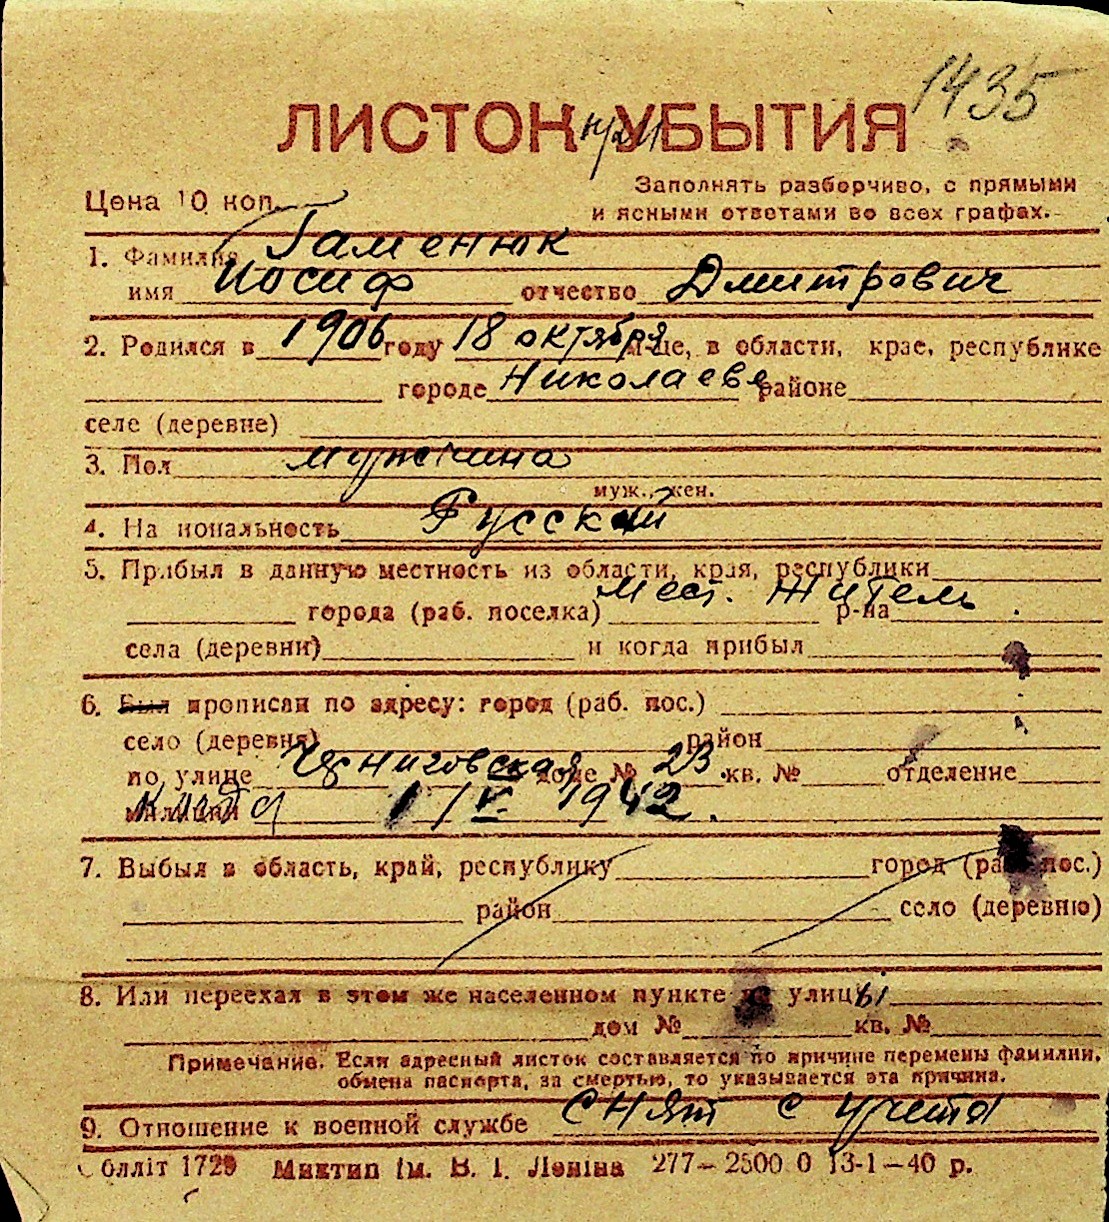 1435
ЛИСТОК при УБЫТИЯ
Цена 10 коп.
Заполнять разборчиво, с прямыми
и ясными ответами во всех графах.
1. Фамилия Гаменюк
имя Иосиф отчество Дмитрович
2. Родился в 1906 году 18 октября м-це, в области, крае, республике
городе Николаеве районе
селе (деревне)
3. Пол мужчина
муж., жен.
4. Национальность Русский
5. Прибыл в данную местность из области, края, республики
города (раб. поселка) мест. житель р-на
села (деревни) и когда прибыл
6. Был прописан по адресу: город (раб. пос.)
село (деревня) район
по улице Черниговская доме № 23. кв. № отделение
милиции 1/V 1942.
7. Выбыл в область, край, республику город (раб. пос.)
район село (деревню)
8. Или переехал в этом же населенном пункте на улицы
дом № кв. №
Примечание. Если адресный листок составляется по причине перемены фамилии,
обмена паспорта, за смертью, то указывается эта причина.
9. Отношение к военной службе снят с учета
Облліт 1729 Миктип ім. В. І. Леніна 277–2500 0 13-1–40 р.